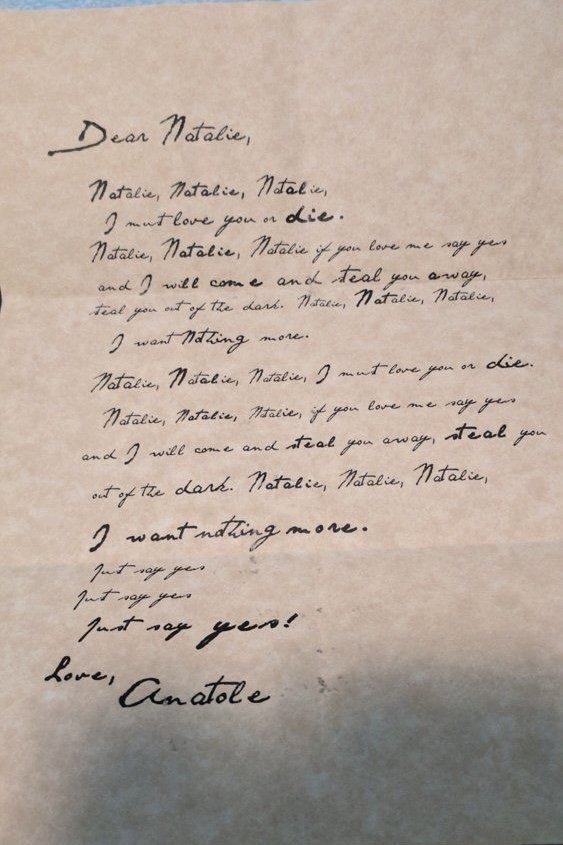 Dear Natalie,
Natalie, Natalie, Natalie,
I must love you or die.
Natalie, Natalie, Natalie if you love me say yes
and I will come and steal you away,
steal you out of the dark. Natalie, Natalie, Natalie,
I want nothing more.
Natalie, Natalie, Natalie, I must love you or die.
Natalie, Natalie, Natalie, if you love me say yes
and I will come and steal you away, steal you
out of the dark. Natalie, Natalie, Natalie,
I want nothing more.
Just say yes
Just say yes
Just say yes!
Love,
Anatole